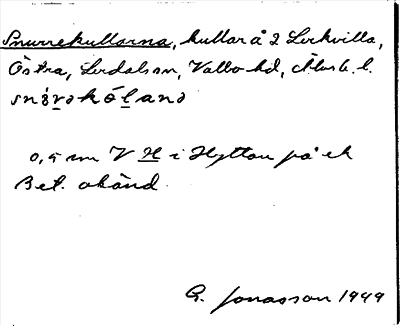 Snurrekullarna, kullar å 2 Lerkvilla,
Östra, Lerdalssn, Valbo hd, Älvsb. l.
snɞ́r̲əkɷ́l̲anə
0,5 cm V H i Hyttan på ek
Bet. okänd.
G. Jonasson 1949